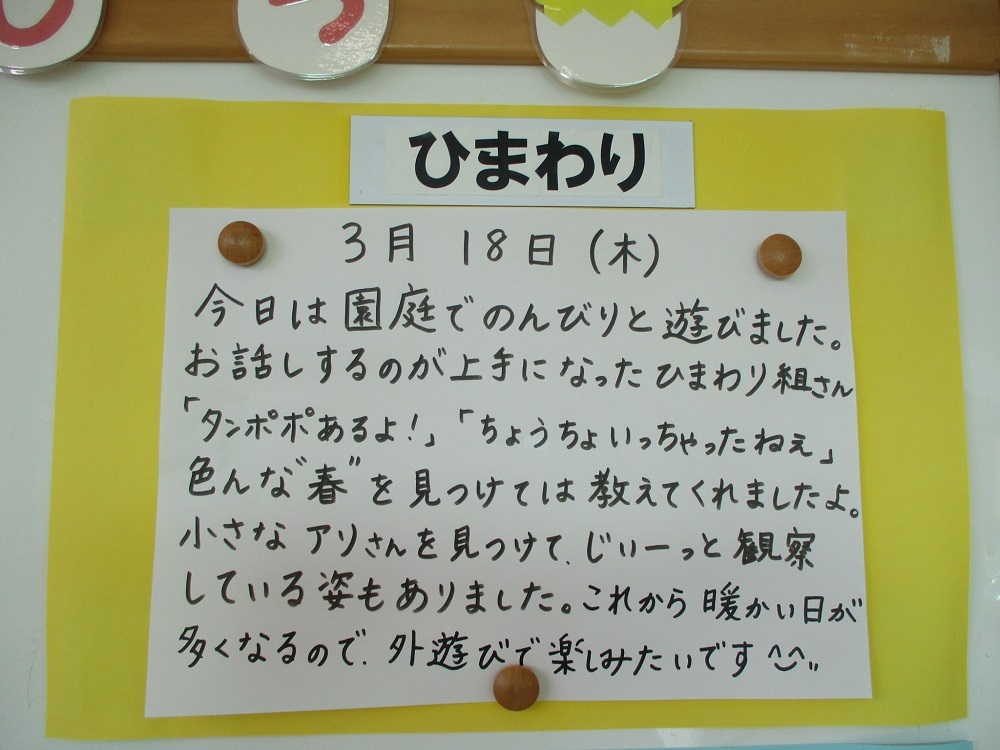 つ
ひまわり
3月 18日 (木)
今日は園庭でのんびりと遊びました。
お話しするのが上手になったひまわり組さん
「タンポポあるよ!」「ちょうちょいっちゃったねぇ」
色んな"春"を見つけては教えてくれましたよ。
小さなアリさんを見つけて、じぃーっと観察
している姿もありました。これから暖かい日が
多くなるので、外遊びで楽しみたいです ^‿^